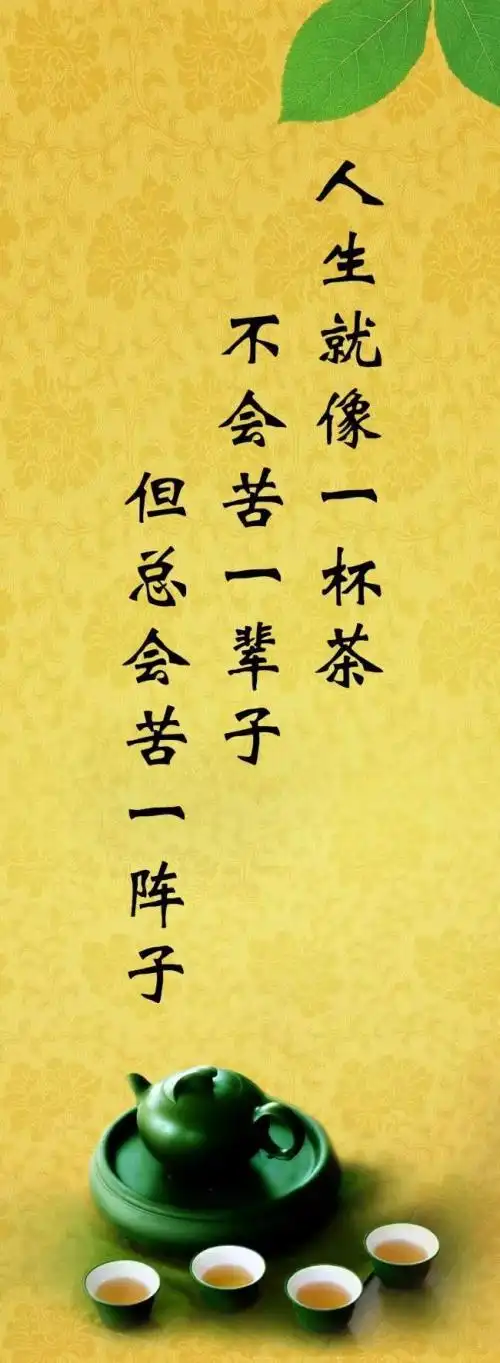 人生就像一杯茶
不会苦一辈子
但总会苦一阵子